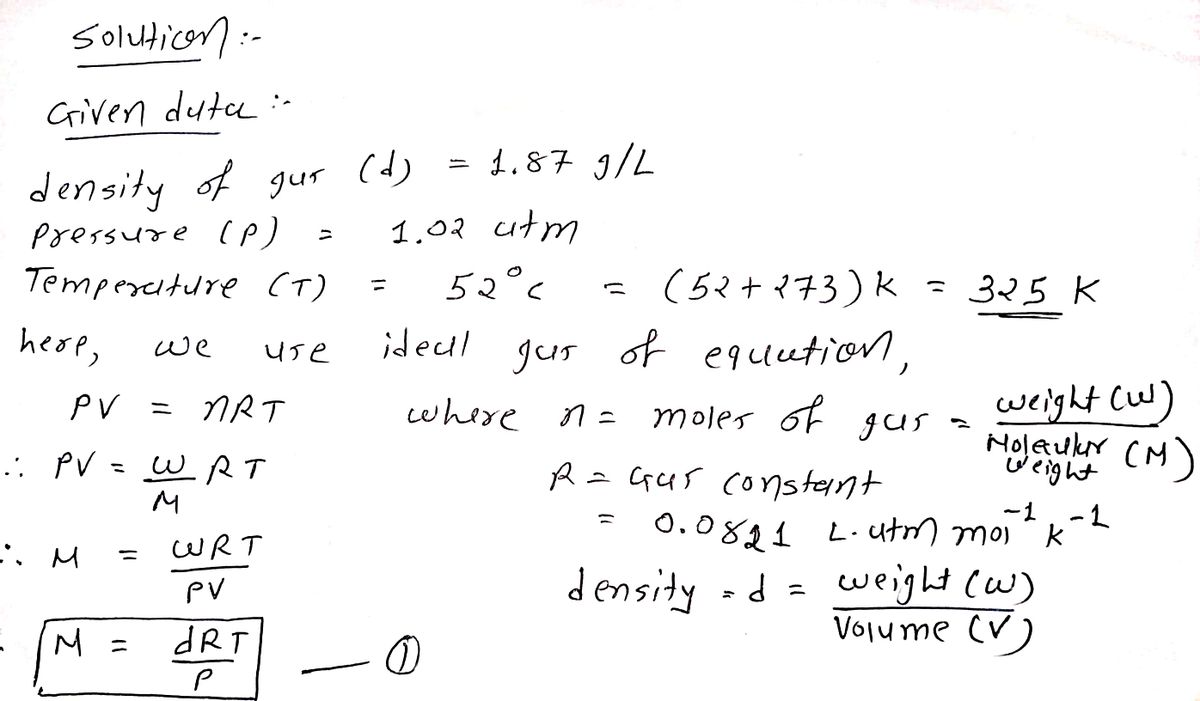 Solution :-
Given data :-
density of gas (d) = 1.87 g/L
Pressure (P) = 1.02 atm
Temperature (T) = 52°C = (52+273) K = 325 K
here, we use ideal gas of equation,
PV = nRT where n = moles of gas = weight (w) / Molecular weight (M)
∴ PV = w/M RT R = Gas constant
= 0.0821 L.atm mol⁻¹ K⁻¹
∴ M = WRT/PV density = d = weight (w) / Volume (V)
M = dRT/P — ①